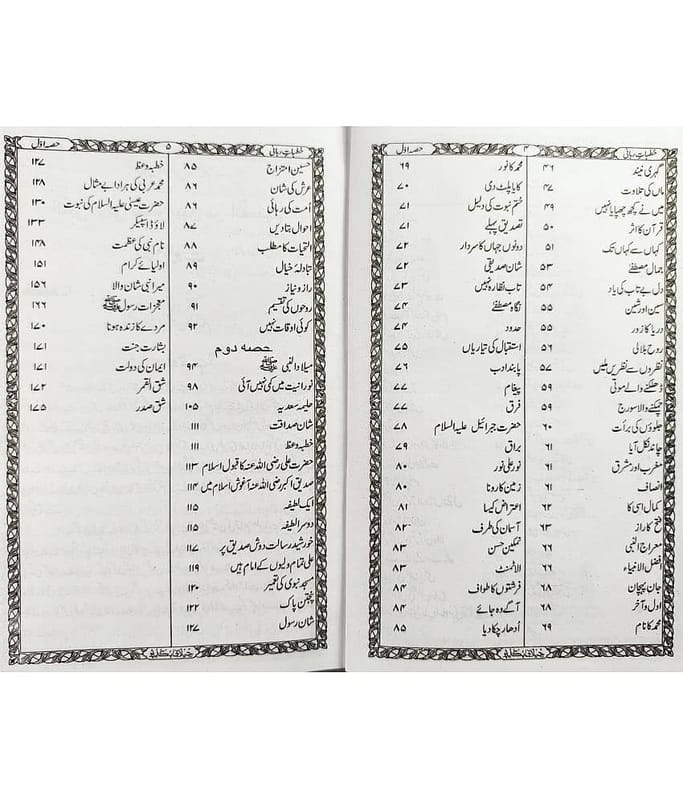 خطبات ربانی ۴ حصہ اوّل
گہری نیند ۴۶
ماں کی تلاوت ۴۷
میں نے کچھ چھپایا نہیں ۴۹
قرآن کا اثر ۵۰
کہاں سے کہاں تک ۵۱
جمال مصطفےٰ ۵۳
دل بے تاب کی یاد ۵۴
سین اور شین ۵۵
دریا کا زور ۵۵
روح بلالی ۵۶
نظروں سے نظریں ملیں ۵۷
ڈھلکنے والے موتی ۵۹
چمکنے والا سورج ۵۹
جلوؤں کی برأت ۶۰
چاند نکل آیا ۶۱
مغرب اور مشرق ۶۱
انصاف ۶۱
کمال اسی کا ۶۲
فتح کا راز ۶۳
معراج النبی ۶۶
افضل الانبیاء ۶۶
جان پہچان ۶۸
اول و آخر ۶۸
محمد کا نام ۶۹
محمد کا نور ۶۹
کایا پلٹ دی ۷۰
ختم نبوت کی دلیل ۷۱
تصدیق پہلے ۷۱
دونوں جہاں کا سردار ۷۲
شان صدیقی ۷۲
تاب نظارہ نہیں ۷۳
نگاہ مصطفےٰ ۷۴
حدود ۷۴
استقبال کی تیاریاں ۷۵
پابند ادب ۷۶
پیغام ۷۷
فرق ۷۷
حضرت جبرائیل علیہ السلام ۷۸
براق ۷۹
نور علی نور ۸۰
زمین کا رونا ۸۰
اعتراض کیسا ۸۱
آسمان کی طرف ۸۲
نمکین حسن ۸۳
الائمنٹ ۸۳
فرشتوں کا طواف ۸۴
آگے وہ جائے ۸۴
اُدھار چکا دیا ۸۵
خطبات ربانی ۵ حصہ اوّل
حسین امتزاج ۸۵
عرش کی شان ۸۶
اُمت کی رہائی ۸۶
احوال بتا دیں ۸۷
التحیات کا مطلب ۸۸
تبادلہ خیال ۸۹
راز و نیاز ۹۰
روحوں کی تقسیم ۹۱
کوئی اوقات نہیں ۹۲
حصہ دوم
میلاد النبی ﷺ ۹۴
نورانیت میں کمی نہیں آئی ۹۸
حلیمہ سعدیہ ۱۰۵
شان صداقت ۱۱۱
خطبہ وعظ ۱۱۱
حضرت علی رضی اللہ عنہ کا قبول اسلام ۱۱۳
صدیق اکبر رضی اللہ عنہ آغوش اسلام میں ۱۱۴
ایک لطیفہ ۱۱۵
دوسرا لطیفہ ۱۱۵
خورشید رسالت دوش صدیق پر ۱۱۷
علی تمام ولیوں کے امام ہیں ۱۱۹
مسجد نبوی کی تعمیر ۱۲۰
پنجتن پاک ۱۲۲
شان رسول ۱۲۷
خطبہ وعظ ۱۲۷
محمد عربی کی ہر ادا بے مثال ۱۲۸
حضرت عیسیٰ علیہ السلام کی نبوت ۱۳۰
لاؤڈ اسپیکر ۱۳۳
نام نبی کی عظمت ۱۴۸
اولیائے کرام ۱۵۱
میرا نبی شان والا ۱۵۶
معجزات رسول ﷺ ۱۶۶
مردے کا زندہ ہونا ۱۷۰
بشارت جنت ۱۷۱
ایمان کی دولت ۱۷۱
شق القمر ۱۷۲
شق صدر ۱۷۵